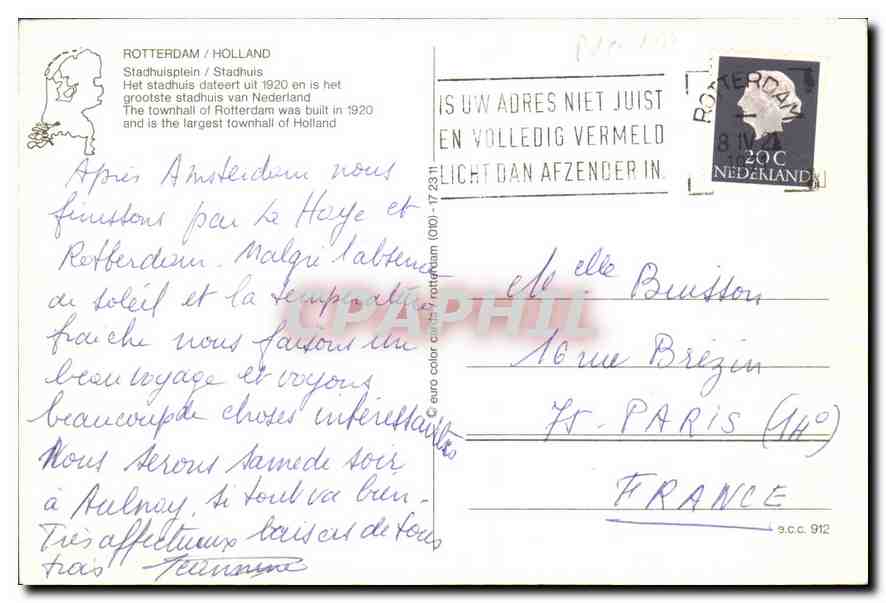 ROTTERDAM / HOLLAND
Stadhuisplein / Stadhuis
Het stadhuis dateert uit 1920 en is het
grootste stadhuis van Nederland
The townhall of Rotterdam was built in 1920
and is the largest townhall of Holland
Après Amsterdam nous
finissons par La Haye et
Rotterdam. Malgré l'absence
de soleil et la température
fraiche nous faisons un
beau voyage et voyons
beaucoup de choses intéressantes
Nous serons samedi soir
à Aulnay, si tout va bien.
Très affectueux baisers de tous
trois Jeannine
© euro color cards / rotterdam (010) - 17 23 11
IS UW ADRES NIET JUIST
EN VOLLEDIG VERMELD
LICHT DAN AFZENDER IN.
ROTTERDAM
8 IV
20 C
NEDERLAND
Melle Buisson
16 rue Brézin
75 - PARIS (14e)
FRANCE
e.c.c. 912
CPAPHIL